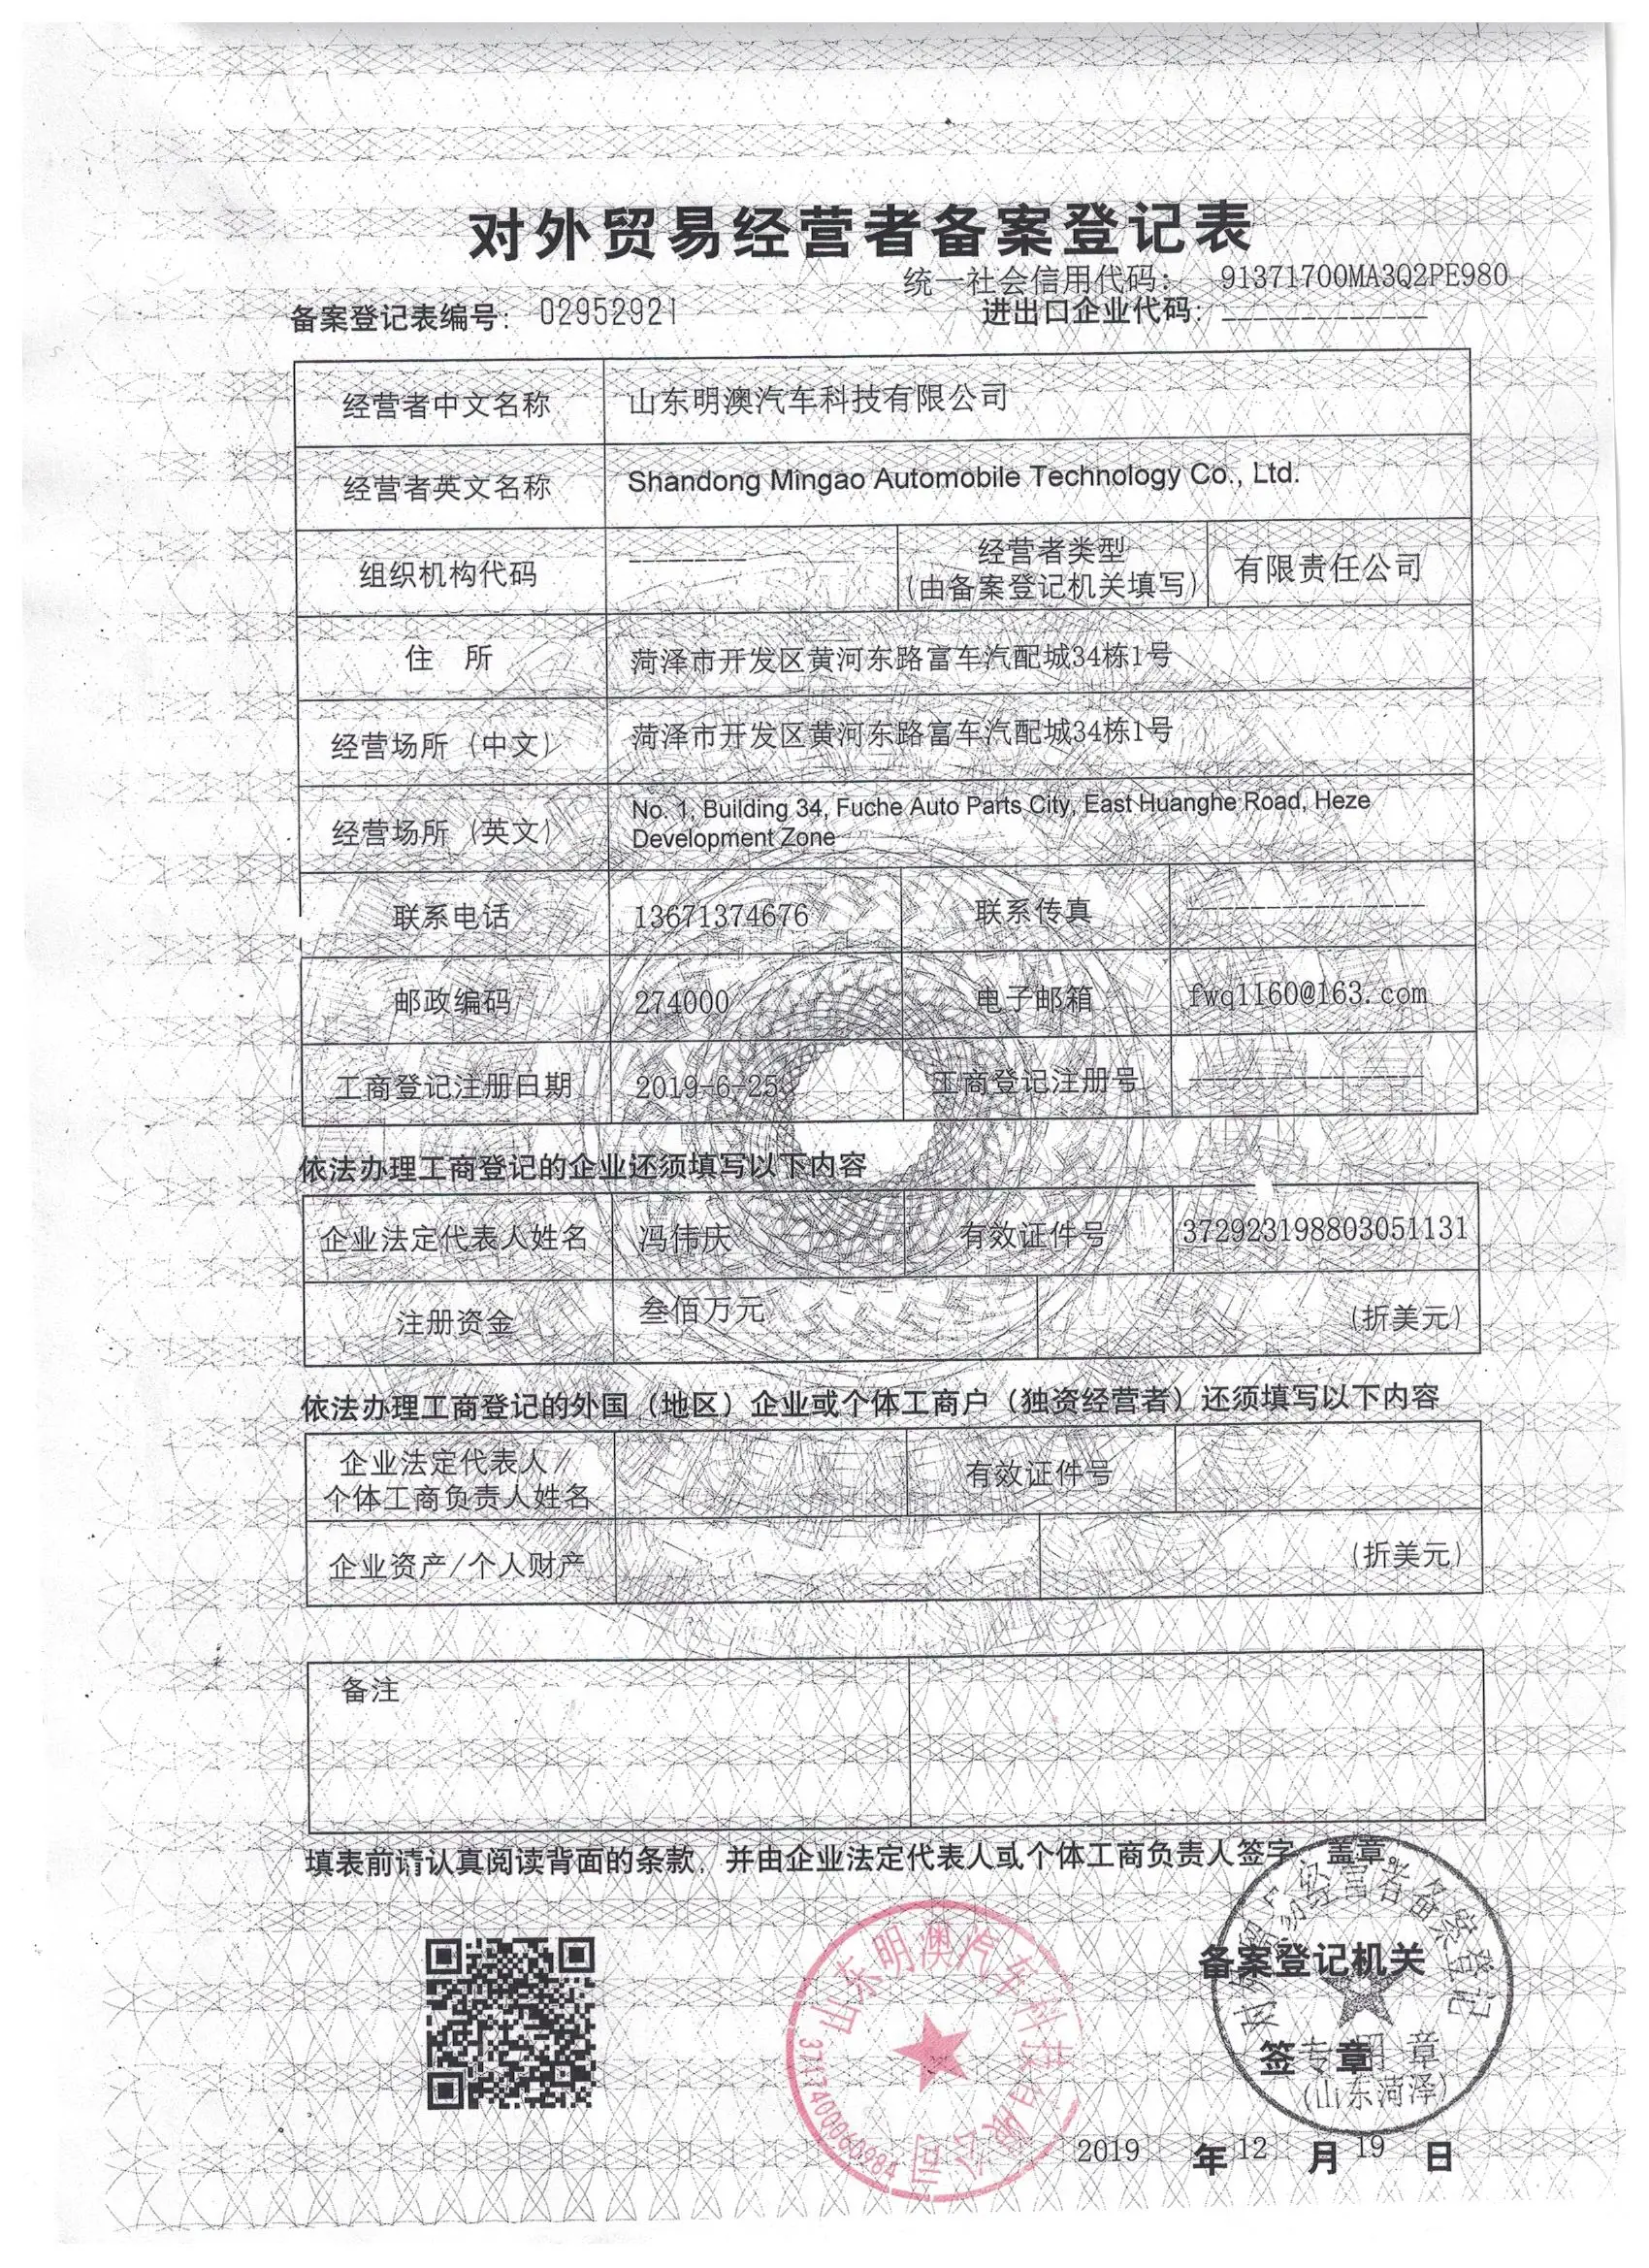 对外贸易经营者备案登记表
统一社会信用代码： 91371700MA3Q2PE980
备案登记表编号： 02952921
进出口企业代码： -------------
经营者中文名称 山东明澳汽车科技有限公司
经营者英文名称 Shandong Mingao Automobile Technology Co., Ltd.
组织机构代码 --------- 经营者类型 有限责任公司
(由备案登记机关填写)
住 所 菏泽市开发区黄河东路富车汽配城34栋1号
经营场所（中文） 菏泽市开发区黄河东路富车汽配城34栋1号
经营场所（英文） No. 1, Building 34, Fuche Auto Parts City, East Huanghe Road, Heze
Development Zone
联系电话 13671374676 联系传真 ---------------
邮政编码 274000 电子邮箱 fwq1160@163.com
工商登记注册日期 2019-6-25 工商登记注册号 ---------------
依法办理工商登记的企业还须填写以下内容
企业法定代表人姓名 冯伟庆 有效证件号 372923198803051131
注册资金 叁佰万元 (折美元)
依法办理工商登记的外国（地区）企业或个体工商户（独资经营者）还须填写以下内容
企业法定代表人／ 有效证件号
个体工商负责人姓名
企业资产/个人财产 (折美元)
备注
填表前请认真阅读背面的条款，并由企业法定代表人或个体工商负责人签字、盖章。
山东明澳汽车科技有限公司
对外贸易经营者备案登记
备案登记机关
签 章
专用章
(山东菏泽)
2019 年 12 月 19 日